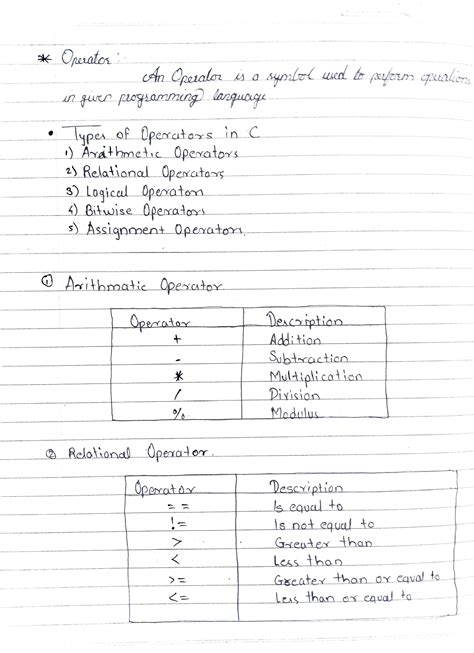 * Operator :
An Operator is a symbol used to perform operations
in given programming language
• Types of Operators in C
1) Arithmetic Operators
2) Relational Operators
3) Logical Operators
4) Bitwise Operators
5) Assignment Operators.
① Arithmatic Operator
Operator Description
+ Addition
- Subtraction
* Multiplication
/ Division
% Modulus
② Relational Operator.
Operator Description
== Is equal to
!= Is not equal to
> Greater than
< Less than
>= Greater than or equal to
<= Less than or equal to